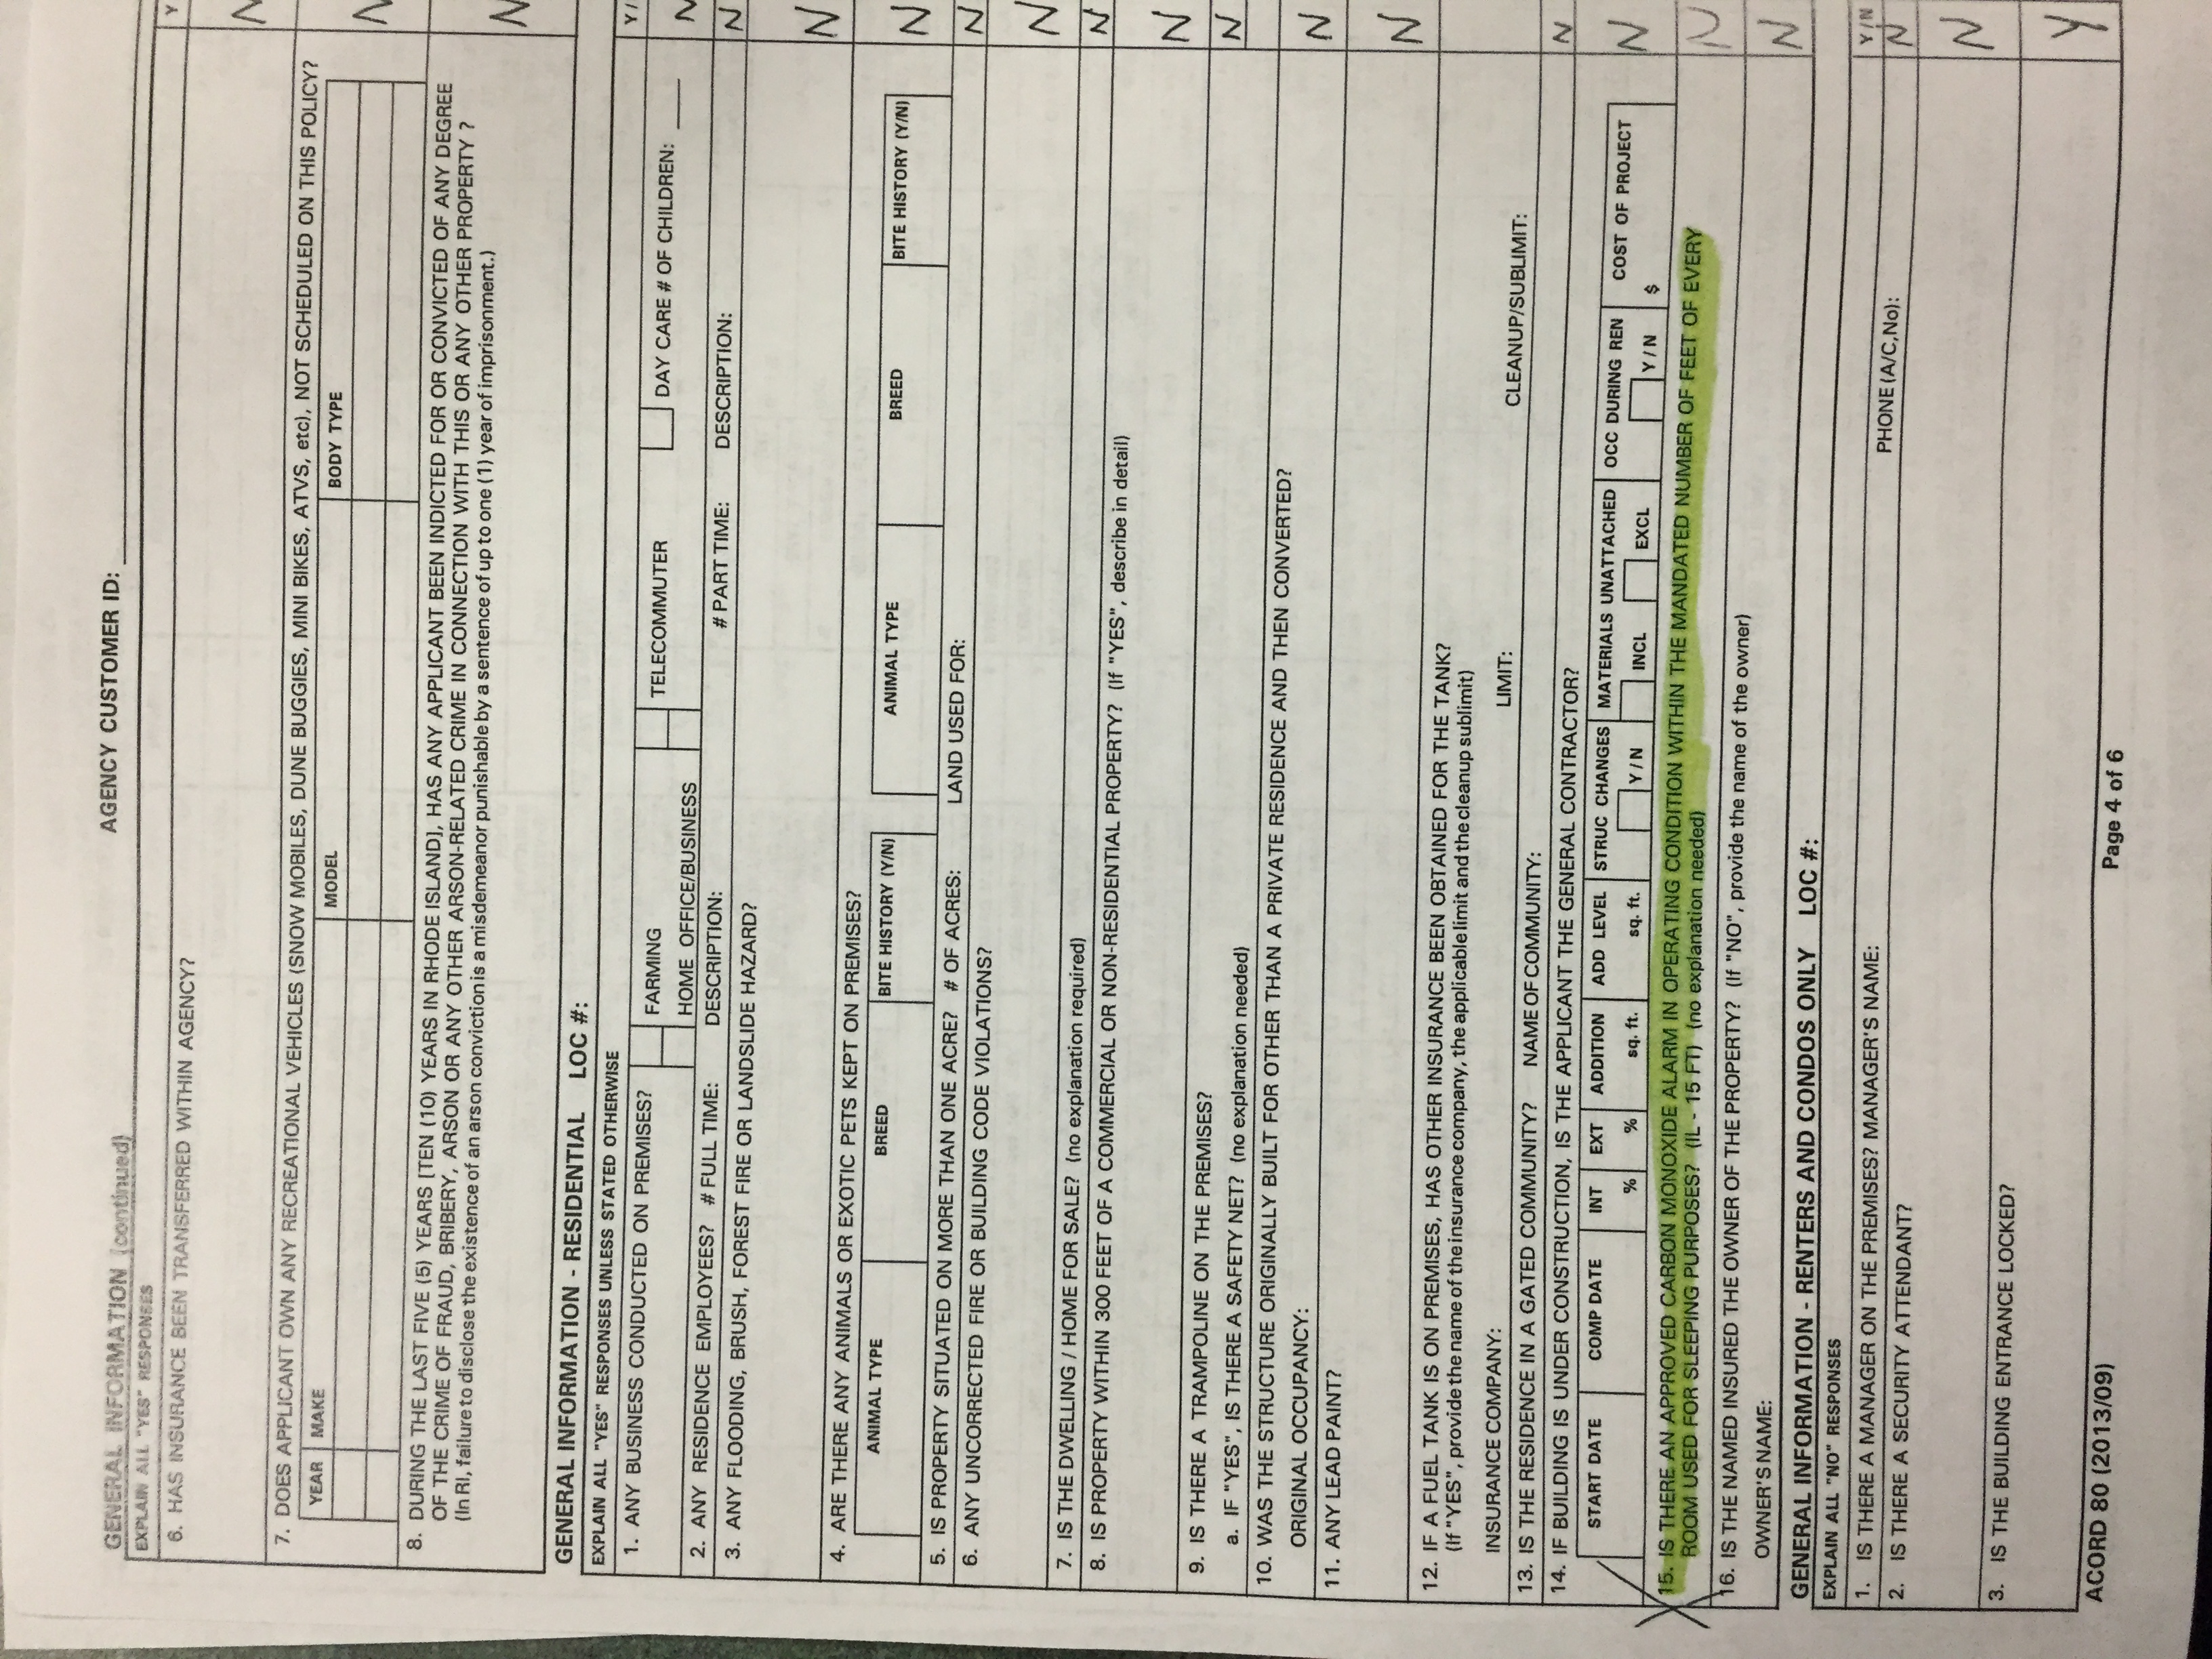 GENERAL INFORMATION (continued)
AGENCY CUSTOMER ID:
EXPLAIN ALL "YES" RESPONSES
Y
6. HAS INSURANCE BEEN TRANSFERRED WITHIN AGENCY?
N
7. DOES APPLICANT OWN ANY RECREATIONAL VEHICLES (SNOW MOBILES, DUNE BUGGIES, MINI BIKES, ATVS, etc), NOT SCHEDULED ON THIS POLICY?
YEAR MAKE MODEL BODY TYPE
N
8. DURING THE LAST FIVE (5) YEARS [TEN (10) YEARS IN RHODE ISLAND], HAS ANY APPLICANT BEEN INDICTED FOR OR CONVICTED OF ANY DEGREE
OF THE CRIME OF FRAUD, BRIBERY, ARSON OR ANY OTHER ARSON-RELATED CRIME IN CONNECTION WITH THIS OR ANY OTHER PROPERTY ?
(In RI, failure to disclose the existence of an arson conviction is a misdemeanor punishable by a sentence of up to one (1) year of imprisonment.)
N
GENERAL INFORMATION - RESIDENTIAL LOC #:
EXPLAIN ALL "YES" RESPONSES UNLESS STATED OTHERWISE
Y/
1. ANY BUSINESS CONDUCTED ON PREMISES? FARMING TELECOMMUTER DAY CARE # OF CHILDREN:
HOME OFFICE/BUSINESS
N
2. ANY RESIDENCE EMPLOYEES? # FULL TIME: DESCRIPTION: # PART TIME: DESCRIPTION:
N
3. ANY FLOODING, BRUSH, FOREST FIRE OR LANDSLIDE HAZARD?
N
4. ARE THERE ANY ANIMALS OR EXOTIC PETS KEPT ON PREMISES?
ANIMAL TYPE BREED BITE HISTORY (Y/N) ANIMAL TYPE BREED BITE HISTORY (Y/N)
N
5. IS PROPERTY SITUATED ON MORE THAN ONE ACRE? # OF ACRES: LAND USED FOR:
N
6. ANY UNCORRECTED FIRE OR BUILDING CODE VIOLATIONS?
N
7. IS THE DWELLING / HOME FOR SALE? (no explanation required)
N
8. IS PROPERTY WITHIN 300 FEET OF A COMMERCIAL OR NON-RESIDENTIAL PROPERTY? (If "YES", describe in detail)
N
9. IS THERE A TRAMPOLINE ON THE PREMISES?
N
a. IF "YES", IS THERE A SAFETY NET? (no explanation needed)
10. WAS THE STRUCTURE ORIGINALLY BUILT FOR OTHER THAN A PRIVATE RESIDENCE AND THEN CONVERTED?
ORIGINAL OCCUPANCY:
N
11. ANY LEAD PAINT?
N
12. IF A FUEL TANK IS ON PREMISES, HAS OTHER INSURANCE BEEN OBTAINED FOR THE TANK?
(If "YES", provide the name of the insurance company, the applicable limit and the cleanup sublimit)
INSURANCE COMPANY: LIMIT: CLEANUP/SUBLIMIT:
13. IS THE RESIDENCE IN A GATED COMMUNITY? NAME OF COMMUNITY:
N
14. IF BUILDING IS UNDER CONSTRUCTION, IS THE APPLICANT THE GENERAL CONTRACTOR?
START DATE COMP DATE INT EXT ADDITION ADD LEVEL STRUC CHANGES MATERIALS UNATTACHED OCC DURING REN COST OF PROJECT
% % sq. ft. sq. ft. Y/N INCL EXCL Y/N $
N
15. IS THERE AN APPROVED CARBON MONOXIDE ALARM IN OPERATING CONDITION WITHIN THE MANDATED NUMBER OF FEET OF EVERY
ROOM USED FOR SLEEPING PURPOSES? (IL - 15 FT) (no explanation needed)
N
16. IS THE NAMED INSURED THE OWNER OF THE PROPERTY? (If "NO", provide the name of the owner)
OWNER'S NAME:
N
GENERAL INFORMATION - RENTERS AND CONDOS ONLY LOC #:
EXPLAIN ALL "NO" RESPONSES
Y/N
1. IS THERE A MANAGER ON THE PREMISES? MANAGER'S NAME: PHONE (A/C,No):
N
2. IS THERE A SECURITY ATTENDANT?
N
3. IS THE BUILDING ENTRANCE LOCKED?
Y
ACORD 80 (2013/09)
Page 4 of 6